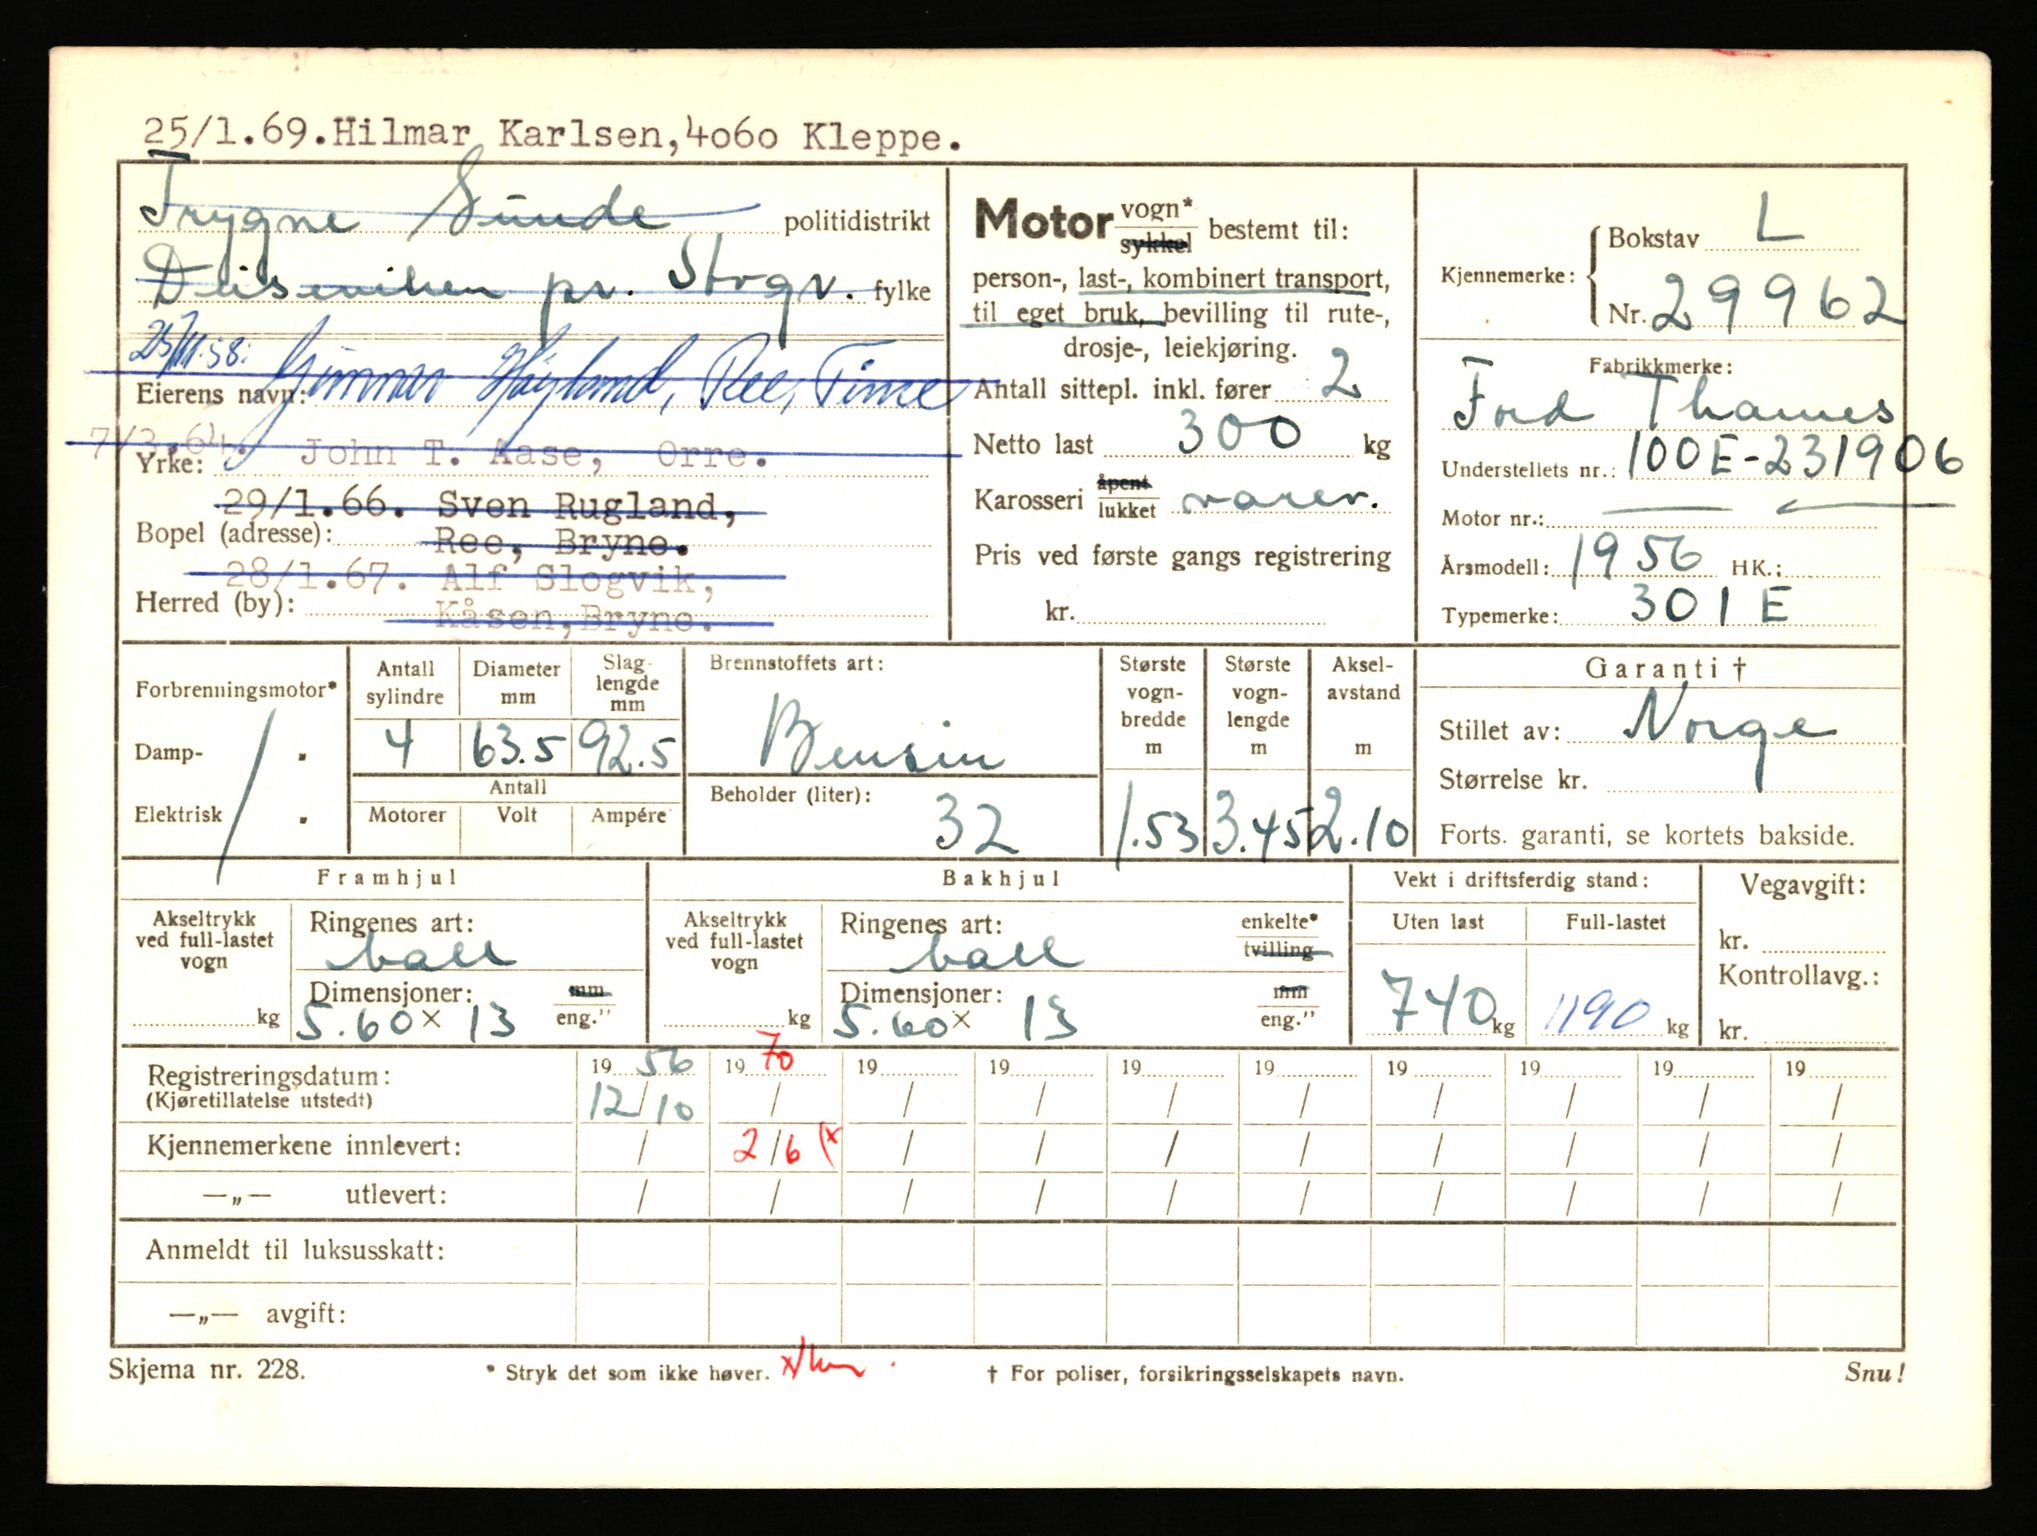 25/1.69.Hilmar Karlsen,4060 Kleppe.
Trygve Sunde politidistrikt
pr. Stvgr. fylke
25/11.58. Gunnar Høyland, Ree, Time
Eierens navn:
7/3.64. John T. Aase, Orre.
Yrke:
29/1.66. Sven Rugland,
Bopel (adresse): Ree, Bryne.
28/1.67. Alf Slogvik,
Herred (by): Kåsen,Bryne.
Motor vogn* sykkel bestemt til:
person-, last-, kombinert transport,
til eget bruk, bevilling til rute-,
drosje-, leiekjøring.
Antall sittepl. inkl. fører 2
Netto last 300 kg
Karosseri åpent lukket varev.
Pris ved første gangs registrering
kr.
Kjennemerke: Bokstav L
Nr. 29962
Fabrikkmerke:
Ford Thames
Understellets nr.: 100E-231906
Motor nr.:
Årsmodell: 1956 HK.:
Typemerke: 301E
Forbrenningsmotor*
Damp- "
Elektrisk "
Antall sylindre Diameter mm Slaglengde mm
4 63.5 92.5
Antall
Motorer Volt Ampére
Brennstoffets art:
Bensin
Beholder (liter):
32
Største vogn-bredde m Største vogn-lengde m Aksel-avstand m
1.53 3.45 2.10
Garanti †
Stillet av: Norge
Størrelse kr.
Forts. garanti, se kortets bakside.
Framhjul
Akseltrykk ved full-lastet vogn
kg
Ringenes art:
ball
Dimensjoner: mm
5.60 x 13 eng."
Bakhjul
Akseltrykk ved full-lastet vogn
kg
Ringenes art: enkelte*
ball tvilling
Dimensjoner: mm
5.60 x 13 eng."
Vekt i driftsferdig stand:
Uten last Full-lastet
740 kg 1190 kg
Vegavgift:
kr.
Kontrollavg.:
kr.
Registreringsdatum: 19 56 19 70 19 19 19 19 19 19 19 19
(Kjøretillatelse utstedt) 12/10 / / / / / / / / /
Kjennemerkene innlevert: / 2/6 (x / / / / / / / /
—„— utlevert: / / / / / / / / / /
Anmeldt til luksusskatt:
—„— avgift:
Skjema nr. 228. * Stryk det som ikke høver. † For poliser, forsikringsselskapets navn. Snu!